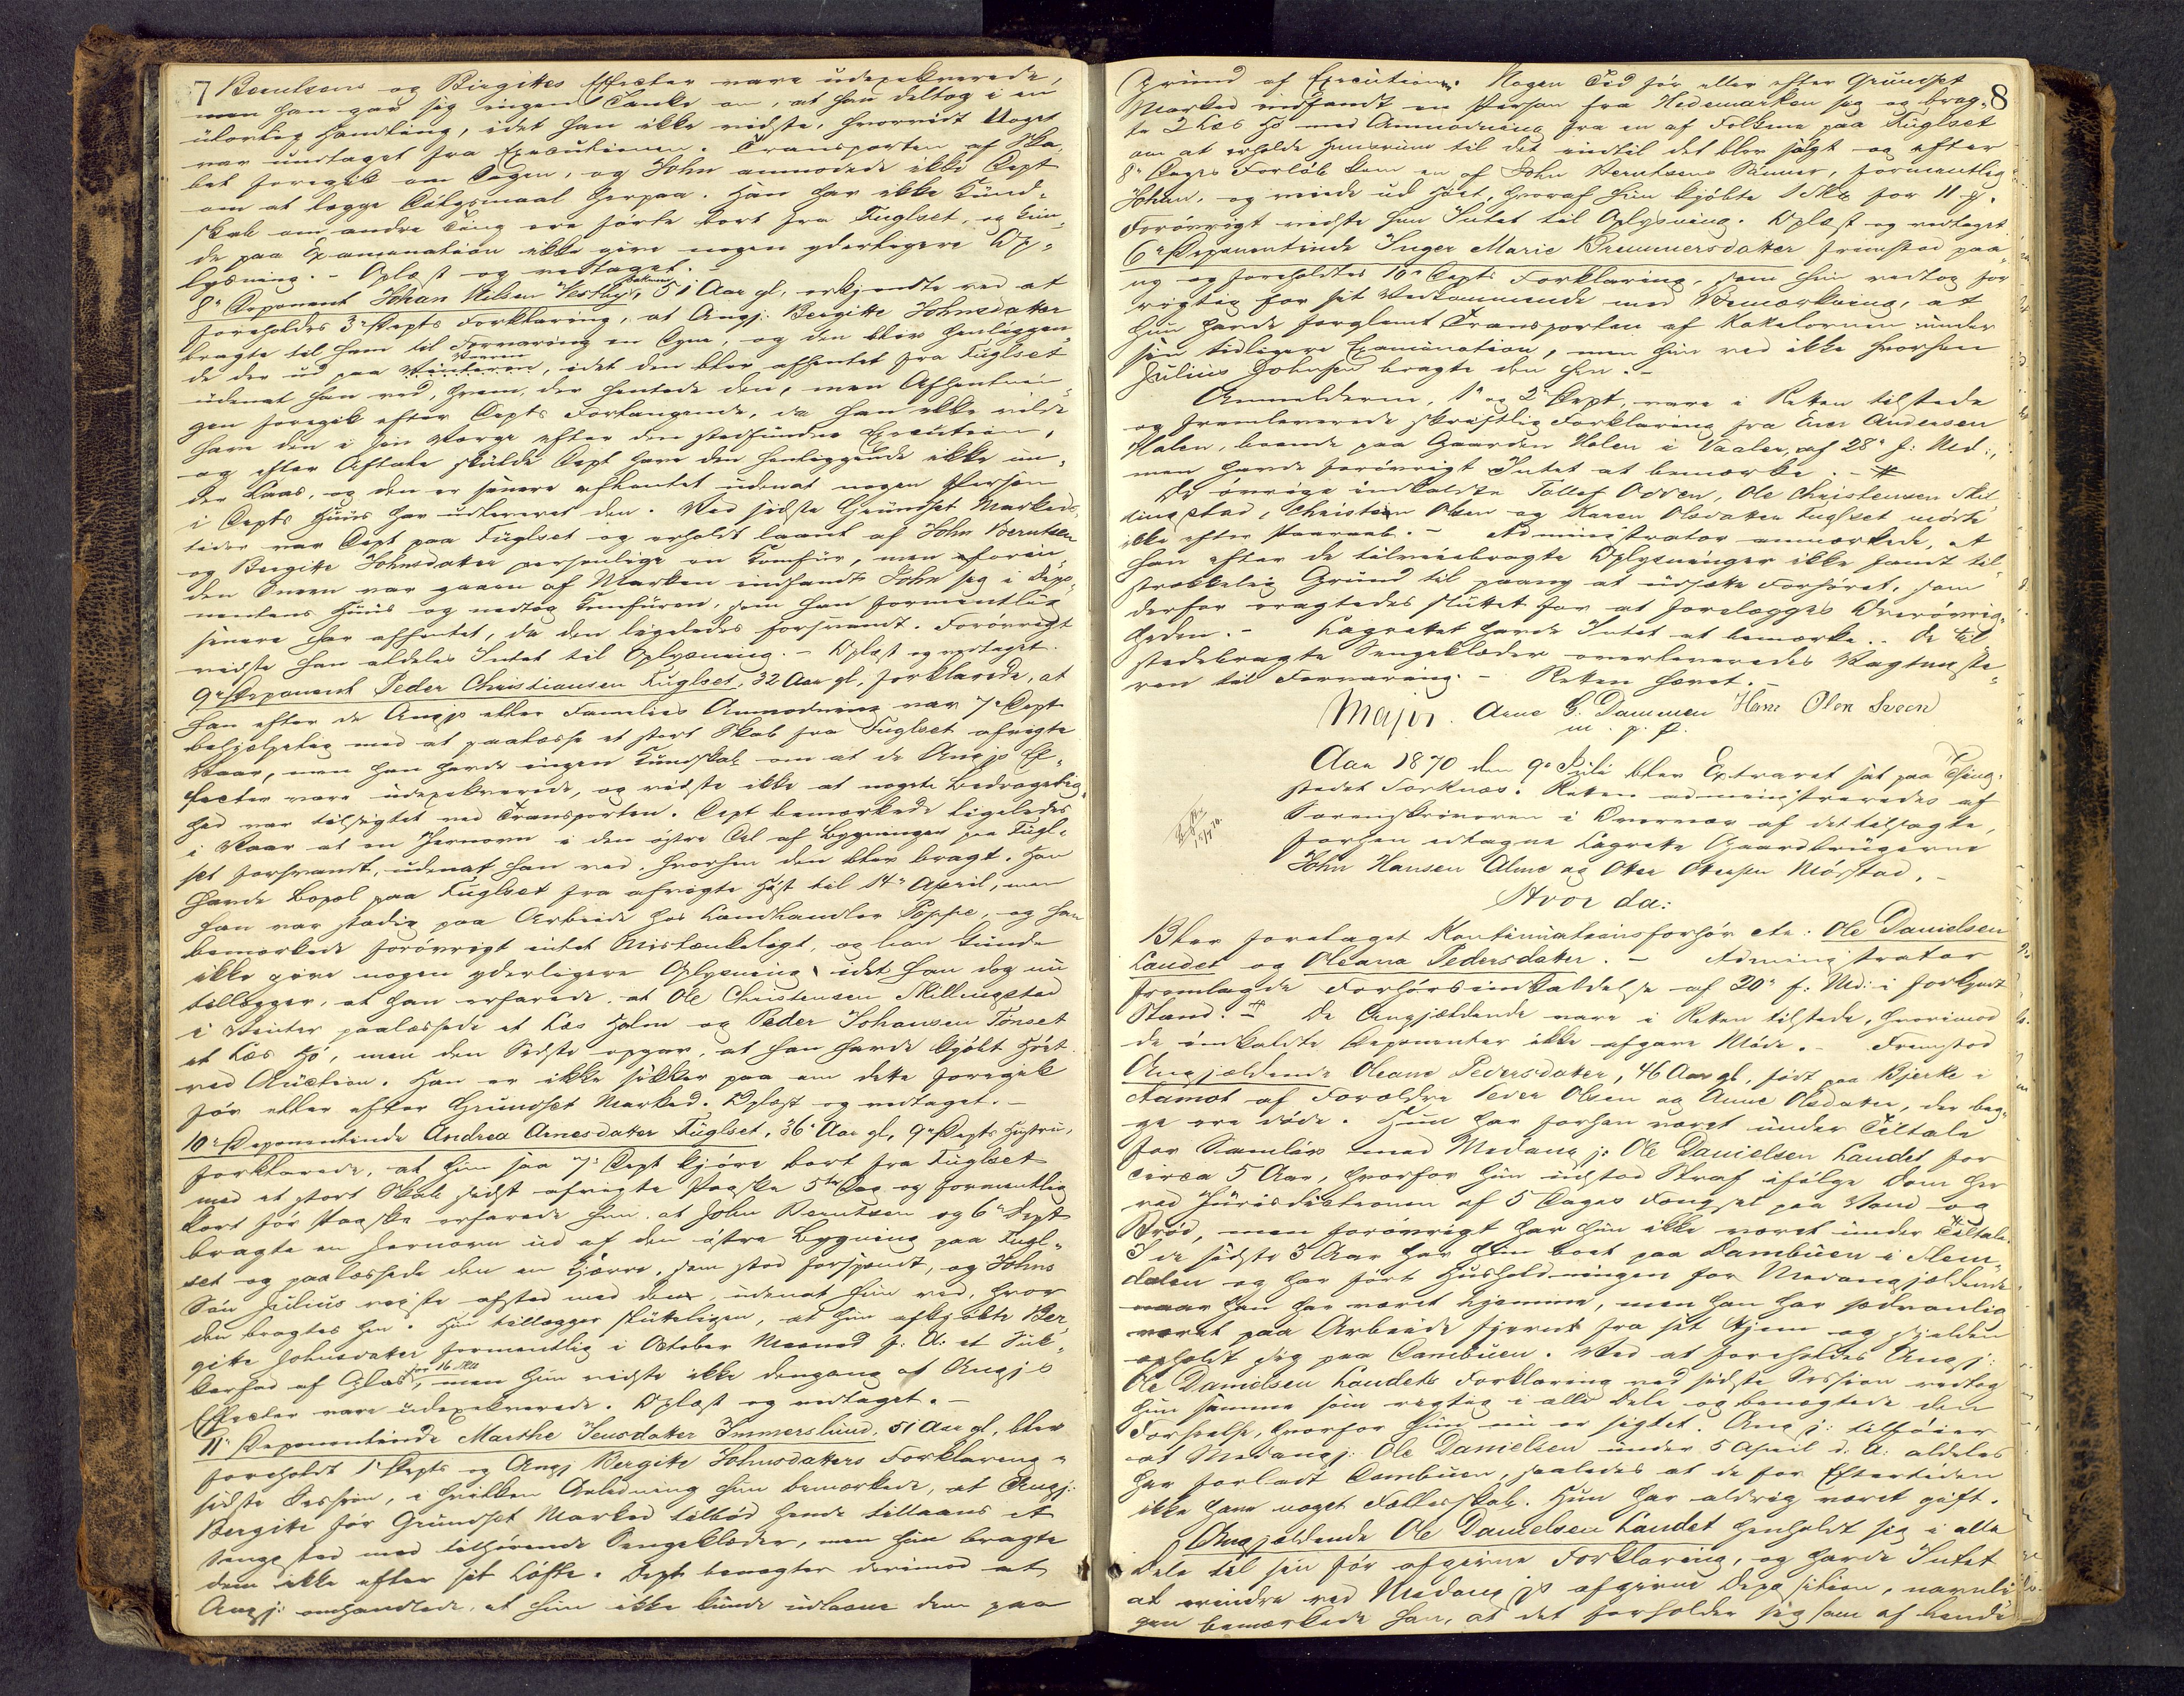 7
Berntsens og Birgittes Effecter vare udexekverede,
men han gav sig ingen Tanke om, at han deltog i en
ulovlig Handling, idet han ikke vidste, hvorvidt Noget
var undtaget fra Executionen. Transporten af Ska-
bet foregik om Dagen, og John anmodede ikke Dept
om at lægge Dølgsmaal herpaa. Han har ikke Kund-
skab om andre Ting ere førte bort fra Fuglset, og kun-
de paa Examination ikke give nogen yderligere Op-
lysning. - Oplæst og vedtaget. -
8de Deponent Johan Nilsen Vestby, 51 Aar gl, erkjendte ved at
foreholdes 3die Depts Forklaring, at Angj: Bergitte Johnsdatter
bragte til ham til Forvaring en Dyne, og den blev henliggen-
de der ud paa Vaaren, idet den blev afhentet fra Fuglset
udenat han ved, hvem, der hentede den, men Afhentnin-
gen foregik efter Depts Forlangende, da han ikke vilde
have den i sin Værge efter den stedfundne Execution,
og efter Aftale skulde Dept have den henliggende ikke un-
der Laas, og den er senere afhentet udenat nogen Person
i Depts Huus har udleveret den. Ved sidste Grundset Markeds-
tider var Dept paa Fuglset og erholdt laant af John Berntsen
og Bergitte Johnsdatter personlige en Komfur, men foruin-
den Sneen var gaaen af Marken indfandt John sig i Depo-
nentens Huus og nedtog Komfuren, som han formentlig
senere har afhentet, da den ligeledes forsvandt. Forøvrigt
vidste han aldeles Intet til Oplysning. - Oplæst og vedtaget.
9de Deponent Peder Christiansen Fuglset, 32 Aar gl, forklarede, at
han efter de Angjs eller Families Anmodning var 7de Dept
behjælpelig med at paalæsse et stort Skab fra Fuglset afvigte
Vaar, men han havde ingen Kundskab om at de Angjs Ef-
fecter vare udexekverede, og vidste ikke at nogen Bedragelig-
hed var tilsigtet ved Transporten. Dept bemærkede ligeledes
i Vaar at en Jernovn i den østre Del af Bygningen paa Fugl-
set forsvandt, udenat han ved, hvorhen den blev bragt. Han
havde Bopæl paa Fuglset fra afvigte Høst til 14de April, men
han var stadig paa Arbeide hos Landhandler Poppe, og han
bemærkede forøvrigt intet Mistænkeligt, og han kunde
ikke give nogen yderligere Oplysning, idet han dog nu
tillægger, at han erfarede, at Ole Christensen Skillingstad
i Vinter paalæssede et Læs Halm og Peder Johansen Tønset
et Læs Hø, men den Sidste opgav, at han havde kjøbt Høet
ved Auction. Han er ikke sikker paa om dette foregik
før eller efter Grundset Marked. Oplæst og vedtaget. -
10de Deponentinde Andrea Arnesdatter Fuglset, 36 Aar gl, 9de Depts Hustru,
forklarede, at hun saa 7de Dept kjøre bort fra Fuglset
med et stort Skab sidst afvigte Paaske 5te Dag og formentlig
kort før Paaske erfarede hun, at John Berntsen og 6te Dept
bragte en Jernovn ud af den østre Bygning paa Fugl-
set og paalæssede den en Kjærre, som stod forspændt, og Johns
Søn Julius reiste afsted med den, udenat hun ved, hvor
den bragtes hen. Hun tillægger slutteligen, at hun afkjøbte Ber-
gitte Johnsdatter formentlig i October Maaned f. A: et Suk-
kerfad af Glas for 16 Sk, men hun vidste ikke dengang at Angjs
Effecter vare udexekverede. Oplæst og vedtaget. -
11te Deponentinde Marthe Jensdatter Immerslund, 51 Aar gl, blev
foreholdt 1ste Depts og Angj Bergitte Johnsdatters Forklaring
sidste Session, i hvilken Anledning hun bemærkede, at Angj:
Bergitte før Grundset Marked tilbød hende tillaans et
Sengested med tilhørende Sengeklæder, men hun bragte
dem ikke efter sit Løfte. Dept benægter derimod at
Angj: omhandlede, at hun ikke kunde udlaane dem paa
8
Grund af Executionen. Nogen Tid før eller efter Grundset
Marked indfandt en Person fra Hedemarken sig og brag-
te 2 Læs Hø med Anmodning fra en af Folkene paa Fuglset
om at erholde Huusrum til det indtil det blev solgt og efter
8te Dages Forløb kom en af John Berntsens Sønner, formentlig
Johan, og veiede ud Høet, hvoraf hun kjøbte 1 Skp for 11 .
Forøvrigt vidste hun Intet til Oplysning. Oplæst og vedtaget.
6te Deponentinde Inger Marie Brummersdatter fremstod paa
ny og foreholdtes 10de Depts Forklaring, som hun vedtog for
rigtig for sit Vedkommende med Bemærkning, at
hun havde forglemt Transporten af Kakelovnen under
sin tidligere Examination, men hun ved ikke hvorhen
Julius Johnsen bragte den hen. -
Anmelderen, 1ste og 2den Dept, vare i Retten tilstede
og fremleverede skriftlig Forklaring fra Even Andersen
Holen, boende paa Gaarden Holen i Vaaler, af 28de f: Md:,
men havde forøvrigt Intet at bemærke. -
De øvrige indkaldte Tollef Odden, Ole Christensen Skil-
lingstad, Christian Olsen og Karen Olsdatter Fuglset mødte
ikke efter Paaraab. - Administrator anmærkede, at
han efter de tilveiebragte Oplysninger ikke fandt til-
strækkelig Grund til paany at udsætte Forhøret, som
derfor eragtedes sluttet for at forelægges Overøvrig-
heden. - Lagrettet havde Intet at bemærke. - De til-
stedebragte Sengeklæder overleveredes Vagtmeste-
ren til Forvaring. - Retten hævet. -
Major. Arne G. Dammen Hans Olsen Sveen
m. p. p.
Aar 1870 den 9de Juli blev Extraret sat paa Thing-
stedet Forknæs. Retten administreredes af
Sorenskriveren i Overvær af det tilsagte,
forhen edtagne Lagrette Gaardbrugerne
John Hansen Alme og Oker Okersen Mørstad. -
Hvor da:
Blev foretaget Kontinuationsforhør ctr: Ole Danielsen
Laudet og Oleana Pedersdatter. - Administrator
fremlagde Forhørsindkaldelse af 20de f: Md: i forkyndt
Stand. De Angjældende vare i Retten tilstede, hvorimod
de indkaldte Deponenter ikke afgave Møde. - Fremstod
Angjældende Oleane Pedersdatter, 46 Aar gl, født paa Bjerke i
Aamot af Forældre Peder Olsen og Anne Olsdatter, der beg-
ge ere døde. Hun har forhen været under Tiltale
for Samleie med Medangj: Ole Danielsen Laudet for
circa 5 Aar, hvorfor hun udstod Straf ifølge Dom her
ved Jurisdictionen af 5 Dages Fængsel paa Vand og
Brød, men forøvrigt har hun ikke været under Tiltale.
I de sidste 3 Aar har hun boet paa Dambuen i Slem-
dalen og har ført Husholdningen for Medangjældende
naar han har været hjemme, men han har sædvanlig
været paa Arbeide fjernt fra sit Hjem og sjelden
opholdt sig paa Dambuen. Ved at foreholdes Angj:
Ole Danielsen Laudets Forklaring ved sidste Session vedtog
hun samme som rigtig i alle Dele og benægtede den
Forseelse, hvorfor hun nu er sigtet. Angj: tilføier
at Medangj: Ole Danielsen under 5 April d. A: aldeles
har forladt Dambuen, saaledes at de for Eftertiden
ikke have noget Fællesskab. Hun har aldrig været gift.
Angjældende Ole Danielsen Laudet henholdt sig i alle
Dele til sin før afgivne Forklaring, og havde Intet
at erindre ved Medangjs afgivne Deposition, navnli-
gen bemærkede han, at det forholder sig som af hende